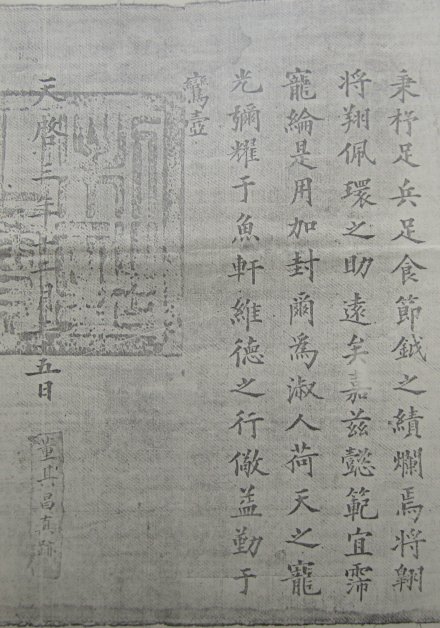 秉杼足兵足食節鉞之績爛焉将翱
将翔佩環之助遠矣嘉兹懿範宜霈
寵綸是用加封爾為淑人荷天之寵
光彌耀于魚軒維德之行儆益勤于
鸞壺
天啓三年十月五日
董其昌真跡